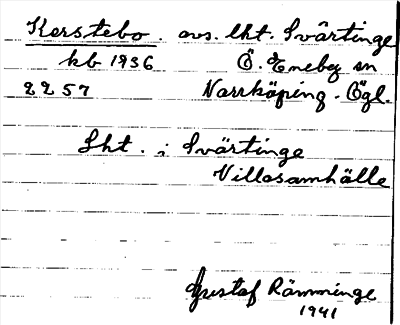 Kerstebo. avs. lht. Svärtinge
kb 1936 Ö. Eneby sn
2257 Norrköping. Ögl.
Lht. i Svärtinge
Villasamhälle
Gustaf Rämminge
1941